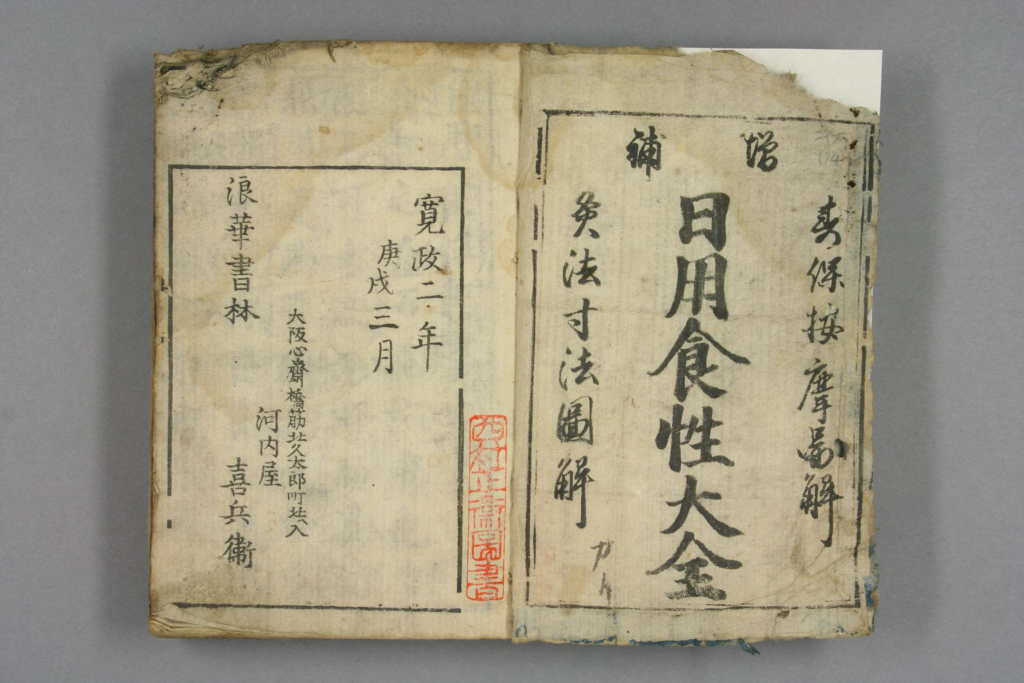 増補
寿保按摩圖解
日用食性大全
灸法寸法圖解
寛政二年
庚戌三月
大阪心齋橋筋北久太郎町北ヘ入
河内屋
浪華書林
喜兵衞